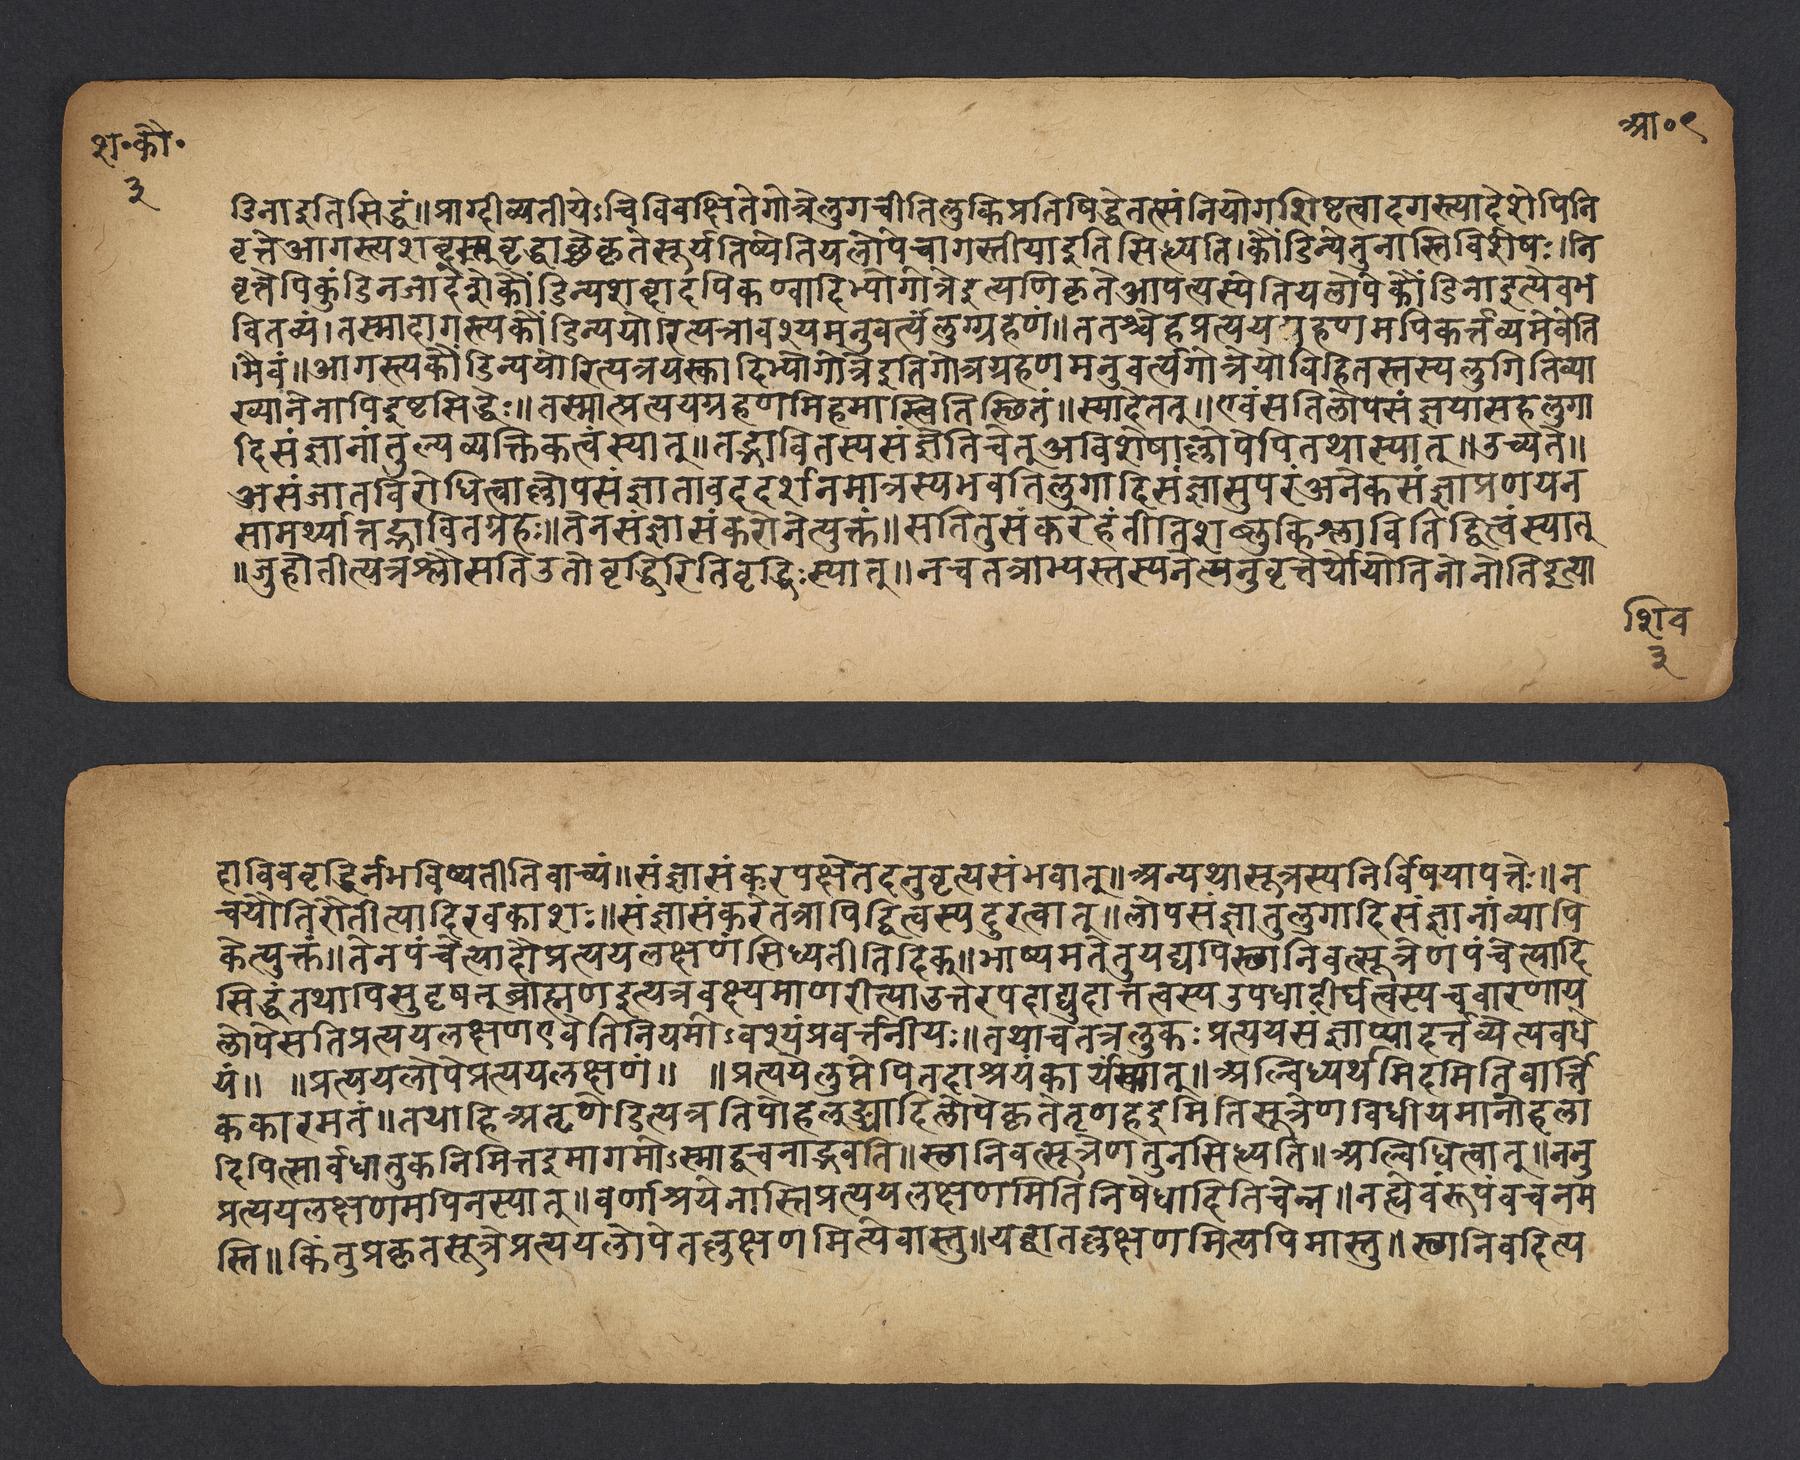 श॰कौ॰
३
आ॰९
डिनाइतिसिद्धं॥प्राग्दीव्यतीयेऽचिविवक्षितेगोत्रेलुगचीतिलुकिप्रतिषिद्धेतत्संनियोगशिष्टत्वादगस्त्यादेशेपिनि
वृत्तेआगस्त्यशब्दस्यवृद्धाच्छेकृतेसूर्यतिष्येतियलोपेचागस्तीयाइतिसिध्यति।कौंडिन्येतुनास्तिविशेषः।नि
वृत्तेपिकुंडिनजादेशेकौंडिन्यशब्दादपिकण्वादिभ्योगोत्रेइत्यणिकृतेआपत्यस्येतियलोपेकौंडिनाइत्येवभ
वितव्यं।तस्मादागस्त्यकौंडिन्ययोरित्यत्रावश्यमनुवर्त्यंलुग्ग्रहणं॥ततश्चेहप्रत्ययग्रहणमपिकर्त्तव्यमेवेति
मैवं॥आगस्त्यकौंडिन्ययोरित्यत्रयस्कादिभ्योगोत्रेइतिगोत्रग्रहणमनुवर्त्यगोत्रेयोविहितस्तस्यलुगितिव्या
ख्यानेनापिइष्टसिद्धेः॥तस्मात्प्रत्ययग्रहणमिहमास्त्वितिस्छितं॥स्यादेतत्॥एवंसतिलोपसंज्ञयासहलुगा
दिसंज्ञानांतुल्यव्यक्तिकत्वंस्यात्॥तद्भावितस्यसंज्ञेतिचेत्अविशेषाल्लोपेपितथास्यात्॥उच्यते॥
असंजातविरोधित्वाल्लोपसंज्ञातावददर्शनमात्रस्यभवतिलुगादिसंज्ञासुपरंअनेकसंज्ञाप्रणयन
सामर्थ्यात्तद्भावितग्रहः॥तेनसंज्ञासंकरोनेत्युक्तं॥सतितुसंकरेहंतीतिशब्लुकिश्लावितिद्वित्वंस्यात्
॥जुहोतीत्यत्रश्लौसतिउतोवृद्धिरितिवृद्धिःस्यात्॥नचतत्राभ्यस्तस्यनेत्यनुवृत्तेर्योयोतिनोनोतिइत्या
शिव
३
दाविववृद्धिर्नभविष्यतीतिवाच्यं॥संज्ञासंकरपक्षेतदनुवृत्यसंभवात्॥अन्यथासूत्रस्यनिर्विषयापत्तेः॥न
चयौतिरौतीत्यादिरवकाशः॥संज्ञासंकरेतत्रापिद्वित्वस्यदुरत्वात्॥लोपसंज्ञातुलुगादिसंज्ञानांव्यापि
केत्युक्तं॥तेनपंचेत्यादौप्रत्ययलक्षणंसिध्यतीतिदिक्॥भाष्यमतेतुयद्यपिस्छानिवत्सूत्रेणपंचेत्यादि
सिद्धंतथापिसुदृषत्ब्राह्मणइत्यत्रवक्ष्यमाणरीत्त्याउत्तरपदाद्युदात्तत्वस्यउपधादीर्घत्वस्यचवारणाय
लोपेसतिप्रत्ययलक्षणएवेतिनियमोऽवश्यंप्रवर्त्तनीयः॥तथाचतत्रलुक्तःप्रत्ययसंज्ञाप्यादर्त्तव्येत्यवधे
यं॥ ॥प्रत्ययलोपेप्रत्ययलक्षणं॥ ॥प्रत्ययेलुप्तेपितदाश्रयंकार्यंस्यात्॥अल्विध्यर्थमिदमितिवार्त्ति
ककारमतं॥तथाहिअतृणेडित्यत्रतिपोहल्ङ्यादिलोपेकृतेतृणहइमितिसूत्रेणविधीयमानोहला
दिपित्सार्वधातुकनिमित्तइमागमोऽस्माद्वचनाद्भवति॥स्छानिवत्सूत्रेणतुनसिध्यति॥अल्विधित्वात्॥ननु
प्रत्ययलक्षणमपिनस्यात्॥वर्णाश्रयेनास्तिप्रत्ययलक्षणमितिनिषेधादितिचेन्न॥नह्येवंरूपंवचनम
स्ति॥किंतुप्रकृतसूत्रेप्रत्ययलोपेतल्लक्षणमित्येवास्तु॥यद्वातल्लक्षणमित्यपिमास्तु॥स्छानिवदित्य